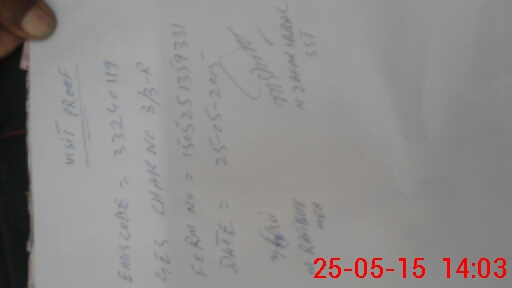 VISIT PROOF
EMISCODE = 33240119
GES CHAK NO 3/3-R
FORM NO = 1505251359331
DATE = 25-05-2015
SST
25-05-15 14:03